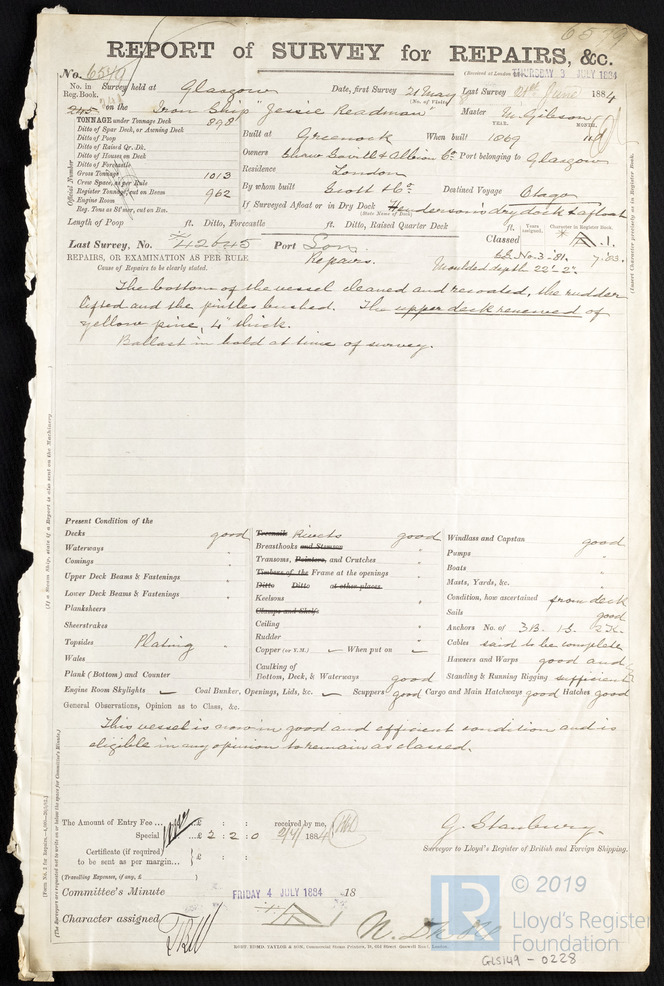 6579
REPORT of SURVEY for REPAIRS, &c.
No. 6540
(Received at London THURSDAY 3 JULY 1884
No. in Reg. Book. Survey held at Glasgow Date, first Survey 21 May Last Survey 21st June 1884
(No. of Visits)
245 on the Iron Ship "Jessie Readman" Master Wm Gibson
TONNAGE under Tonnage Deck 898
YEAR. MONTH.
Ditto of Spar Deck, or Awning Deck
Built at Greenock When built 1869
Ditto of Poop
Ditto of Raised Qr. Dk.
Owners Shaw Savill & Albion Co Port belonging to Glasgow
Ditto of Houses on Deck
Ditto of Forecastle
Residence London
Gross Tonnage 1013
Crew Space, as per Rule
By whom built Scott & Co. Destined Voyage Otago
Register Tonnage, cut on Room 962
Engine Room
If Surveyed Afloat or in Dry Dock Henderson's dry dock & afloat
(State Name of Dock)
Reg. Tons as St'mer, cut on Bm.
Official Number
Length of Poop ft. Ditto, Forecastle ft. Ditto, Raised Quarter Deck ft.
Years assigned. Character in Register Book.
Last Survey, No. 42645 Port Lon Classed A.1.
REPAIRS, OR EXAMINATION AS PER RULE Repairs.
S.S. No. 3-'81. 7.83.
Cause of Repairs to be clearly stated. Moulded depth 22' 2"
(Insert Character precisely as in Register Book.
The bottom of the vessel cleaned and recoated, the rudder
lifted and the pintles bushed. The upper deck renewed of
yellow pine, 4" thick.
Ballast in hold at time of survey.
(If a Steam Ship, state if a Report is also sent on the Machinery
Present Condition of the
Decks good Treenails Rivets good Windlass and Capstan good
Waterways " Breasthooks and Stemson " Pumps "
Comings " Transoms, Pointers, and Crutches " Boats "
Upper Deck Beams & Fastenings " Timbers of the Frame at the openings " Masts, Yards, &c. "
Lower Deck Beams & Fastenings " Ditto Ditto at other places Condition, how ascertained from deck
Planksheers Keelsons " Sails good
Sheerstrakes Clamps and Shelfs Anchors No. of 3B. 1S. 2K.
Topsides Plating " Ceiling " Cables said to be complete
Wales Rudder " Hawsers and Warps good and
Plank (Bottom) and Counter Copper (or Y.M.) When put on Standing & Running Rigging sufficient
Caulking of Bottom, Deck, & Waterways good
Engine Room Skylights Coal Bunker, Openings, Lids, &c. Scuppers good Cargo and Main Hatchways good Hatches good
General Observations, Opinion as to Class, &c.
This vessel is now in good and efficient condition and is
eligible in my opinion to remain as classed.
The Amount of Entry Fee ... £ : : received by me,
Special ... £ 2 : 2 : 0 2/7/ 1884
Certificate (if required) to be sent as per margin... £ : :
(Travelling Expenses, if any, £ )
G. Stanbury.
Surveyor to Lloyd's Register of British and Foreign Shipping.
Committee's Minute FRIDAY 4 JULY 1884 18
Character assigned A
(The Surveyors are requested not to write on or below the space for Committee's Minute.)
LR
© 2019
Lloyd's Register
Foundation
GLS149 - 0228